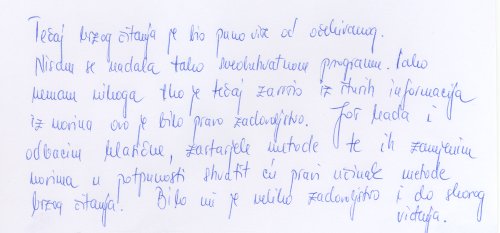 Tečaj brzog čitanja je bio puno više od očekivanog.
Nisam se nadala tako sveobuhvatnom programu. Iako
nemam nikoga tko je tečaj završio iz čijih informacija
iz novina ovo je bilo pravo zadovoljstvo. Još kada i
odbacim klasične, zastarjele metode te ih zamijenim
novima u potpunosti shvatit ću pravi učinak metode
brzog čitanja. Bilo mi je veliko zadovoljstvo i do skorog
viđenja.